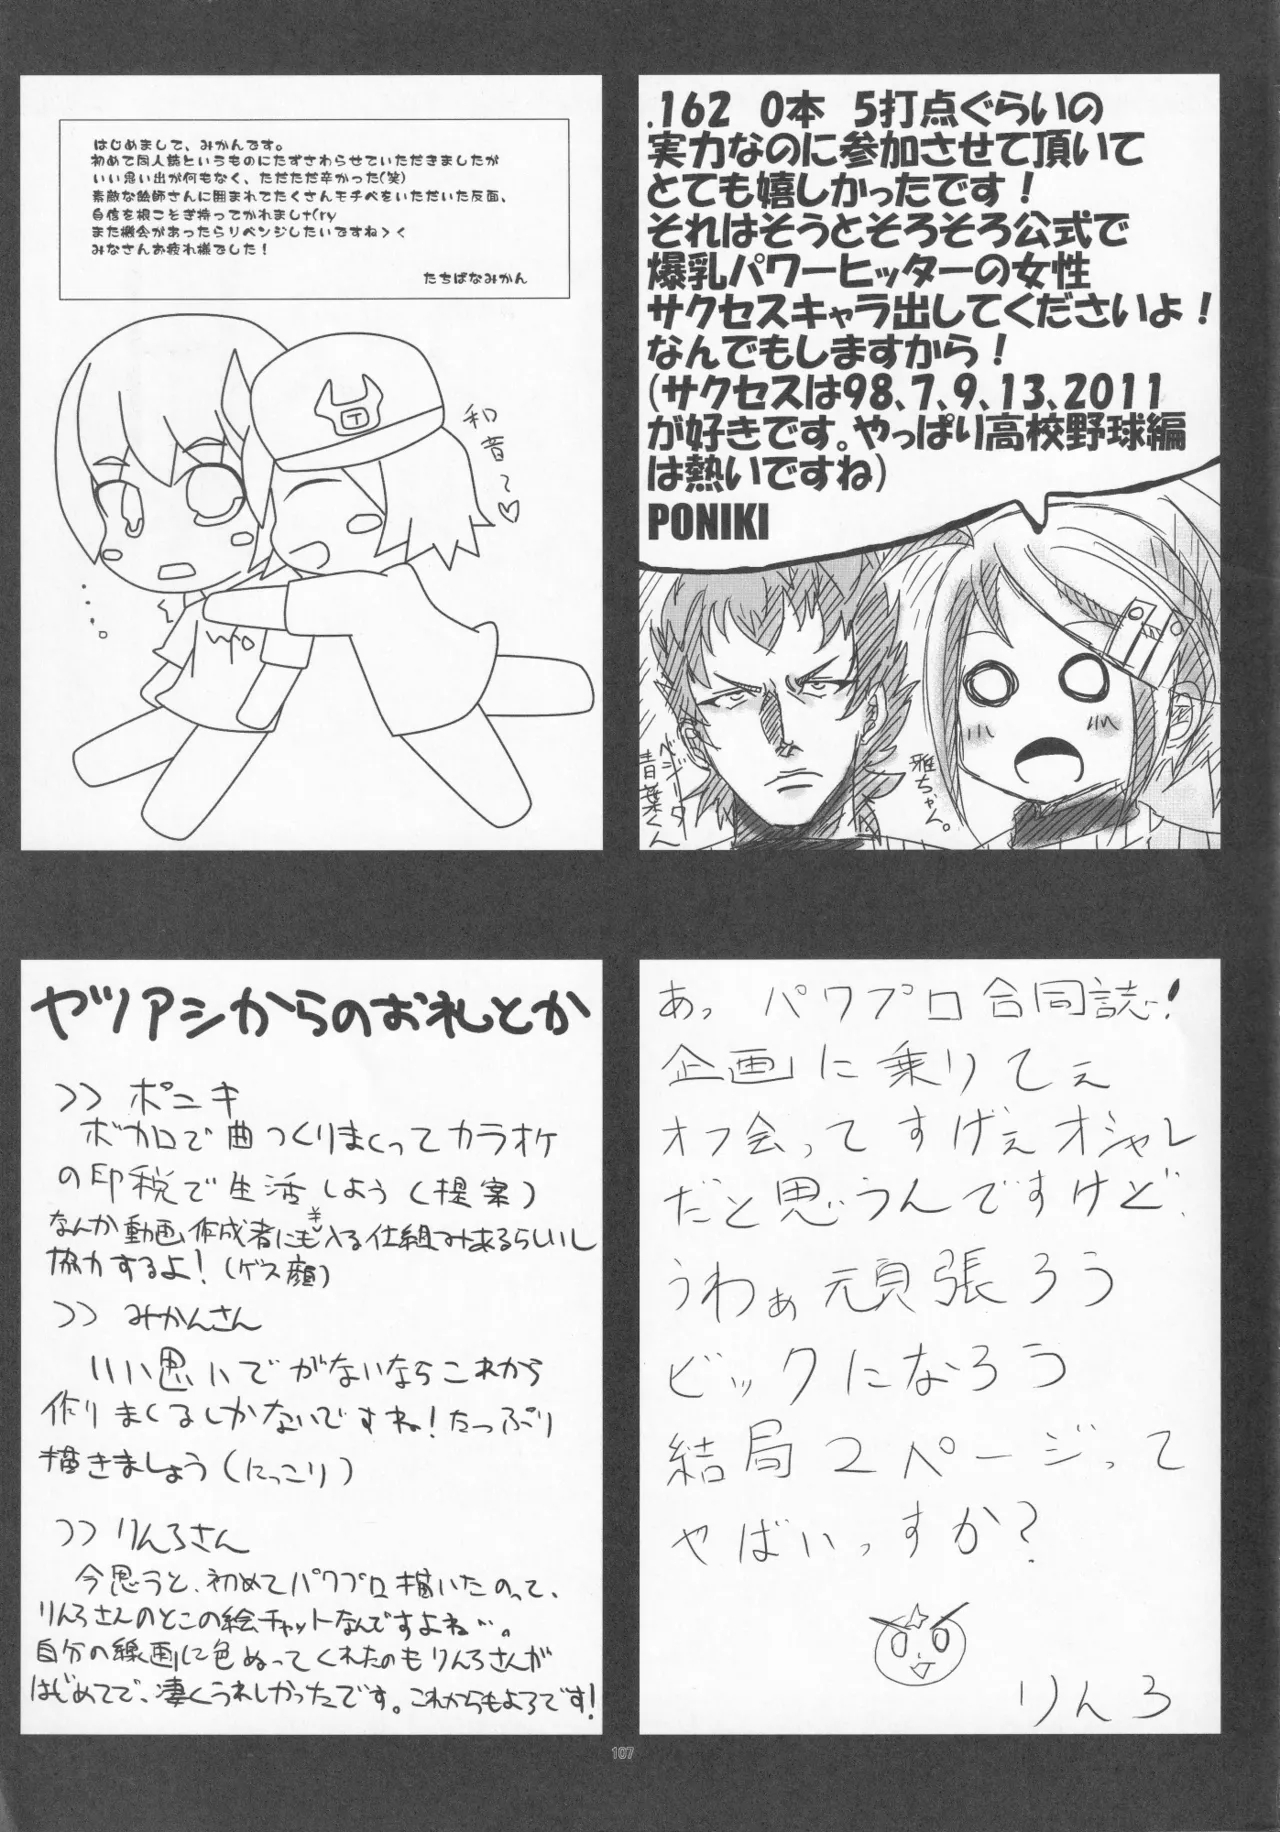 はじめまして、みかんです。
初めて同人誌というものにたずさわらせていただきましたが
いい思い出が何もなく、ただただ辛かった(笑)
素敵な絵師さんに囲まれてたくさんモチベをいただいた反面、
自信を根こそぎ持ってかれましt(ry
また機会があったらリベンジしたいですね＞＜
みなさんお疲れ様でした！
たちばなみかん
和音〜♡
.162 0本 5打点ぐらいの
実力なのに参加させて頂いて
とても嬉しかったです！
それはそうとそろそろ公式で
爆乳パワーヒッターの女性
サクセスキャラ出してくださいよ！
なんでもしますから！
(サクセスは98、7、9、13、2011
が好きです。やっぱり高校野球編
は熱いですね)
PONIKI
ベジータ
青葉くん
雅ちゃん。
ヤツアシからのお礼とか
＞＞ポニキ
ボカロで曲つくりまくってカラオケ
の印税で生活しよう(提案)
なんか動画作成者にも¥入る仕組みあるらしいし
協力するよ！(ゲス顔)
＞＞みかんさん
いい思いでがないならこれから
作りまくるしかないですね！たっぷり
描きましょう(にっこり)
＞＞りんろさん
今思うと、初めてパワプロ描いたのって、
りんろさんのとこの絵チャットなんですよね…。
自分の線画に色ぬってくれたのもりんろさんが
はじめてで、凄くうれしかったです。これからもよろです！
あっ パワプロ合同誌！
企画に乗りてぇ
オフ会ってすげぇオシャレ
だと思うんですけど、
うわぁ頑張ろう
ビックになろう
結局2ページって
やばいっすか？
りんろ
107